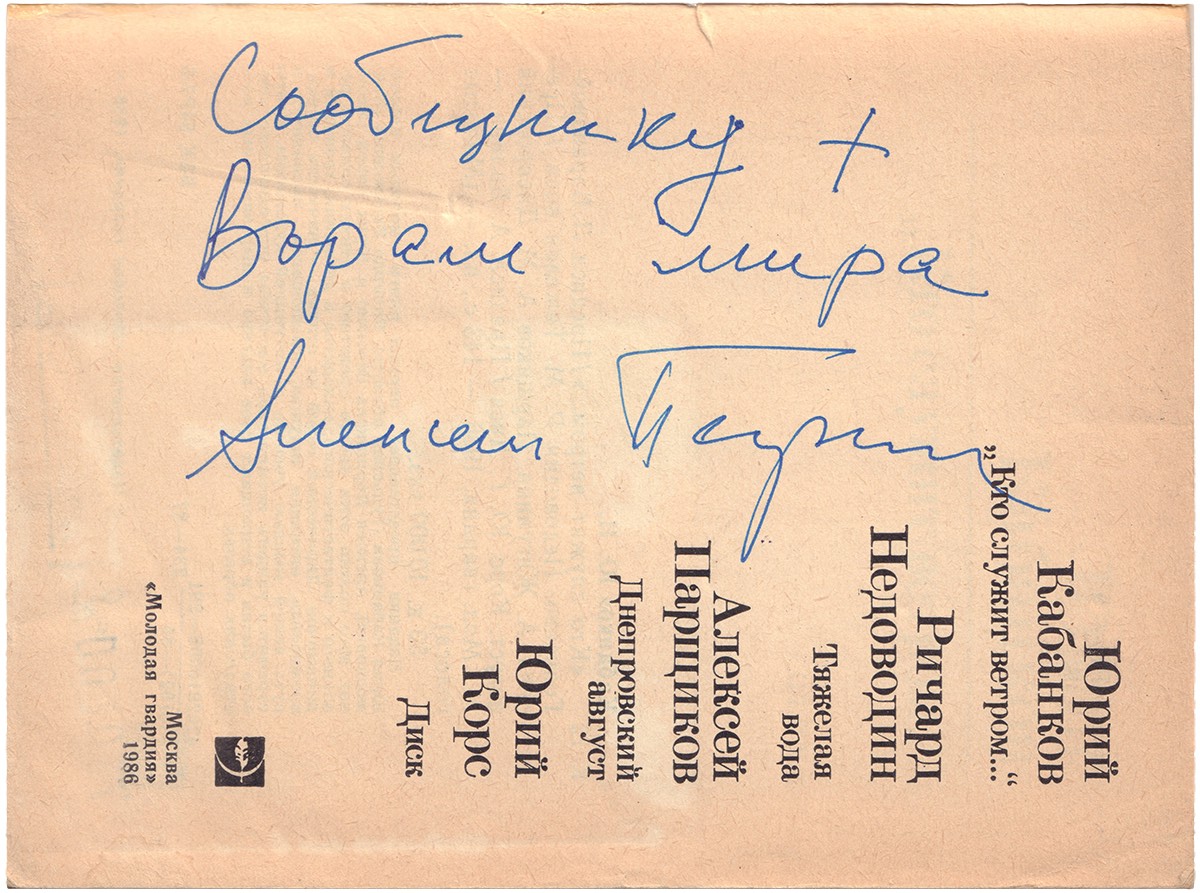 Сообщнику +
Ворам мира
Алексей
Юрий
Кабанков
„Кто служит ветром...“
Ричард
Недоводин
Тяжелая
вода
Алексей
Парщиков
Днепровский
август
Юрий
Корс
Диск
Москва
«Молодая гвардия»
1986